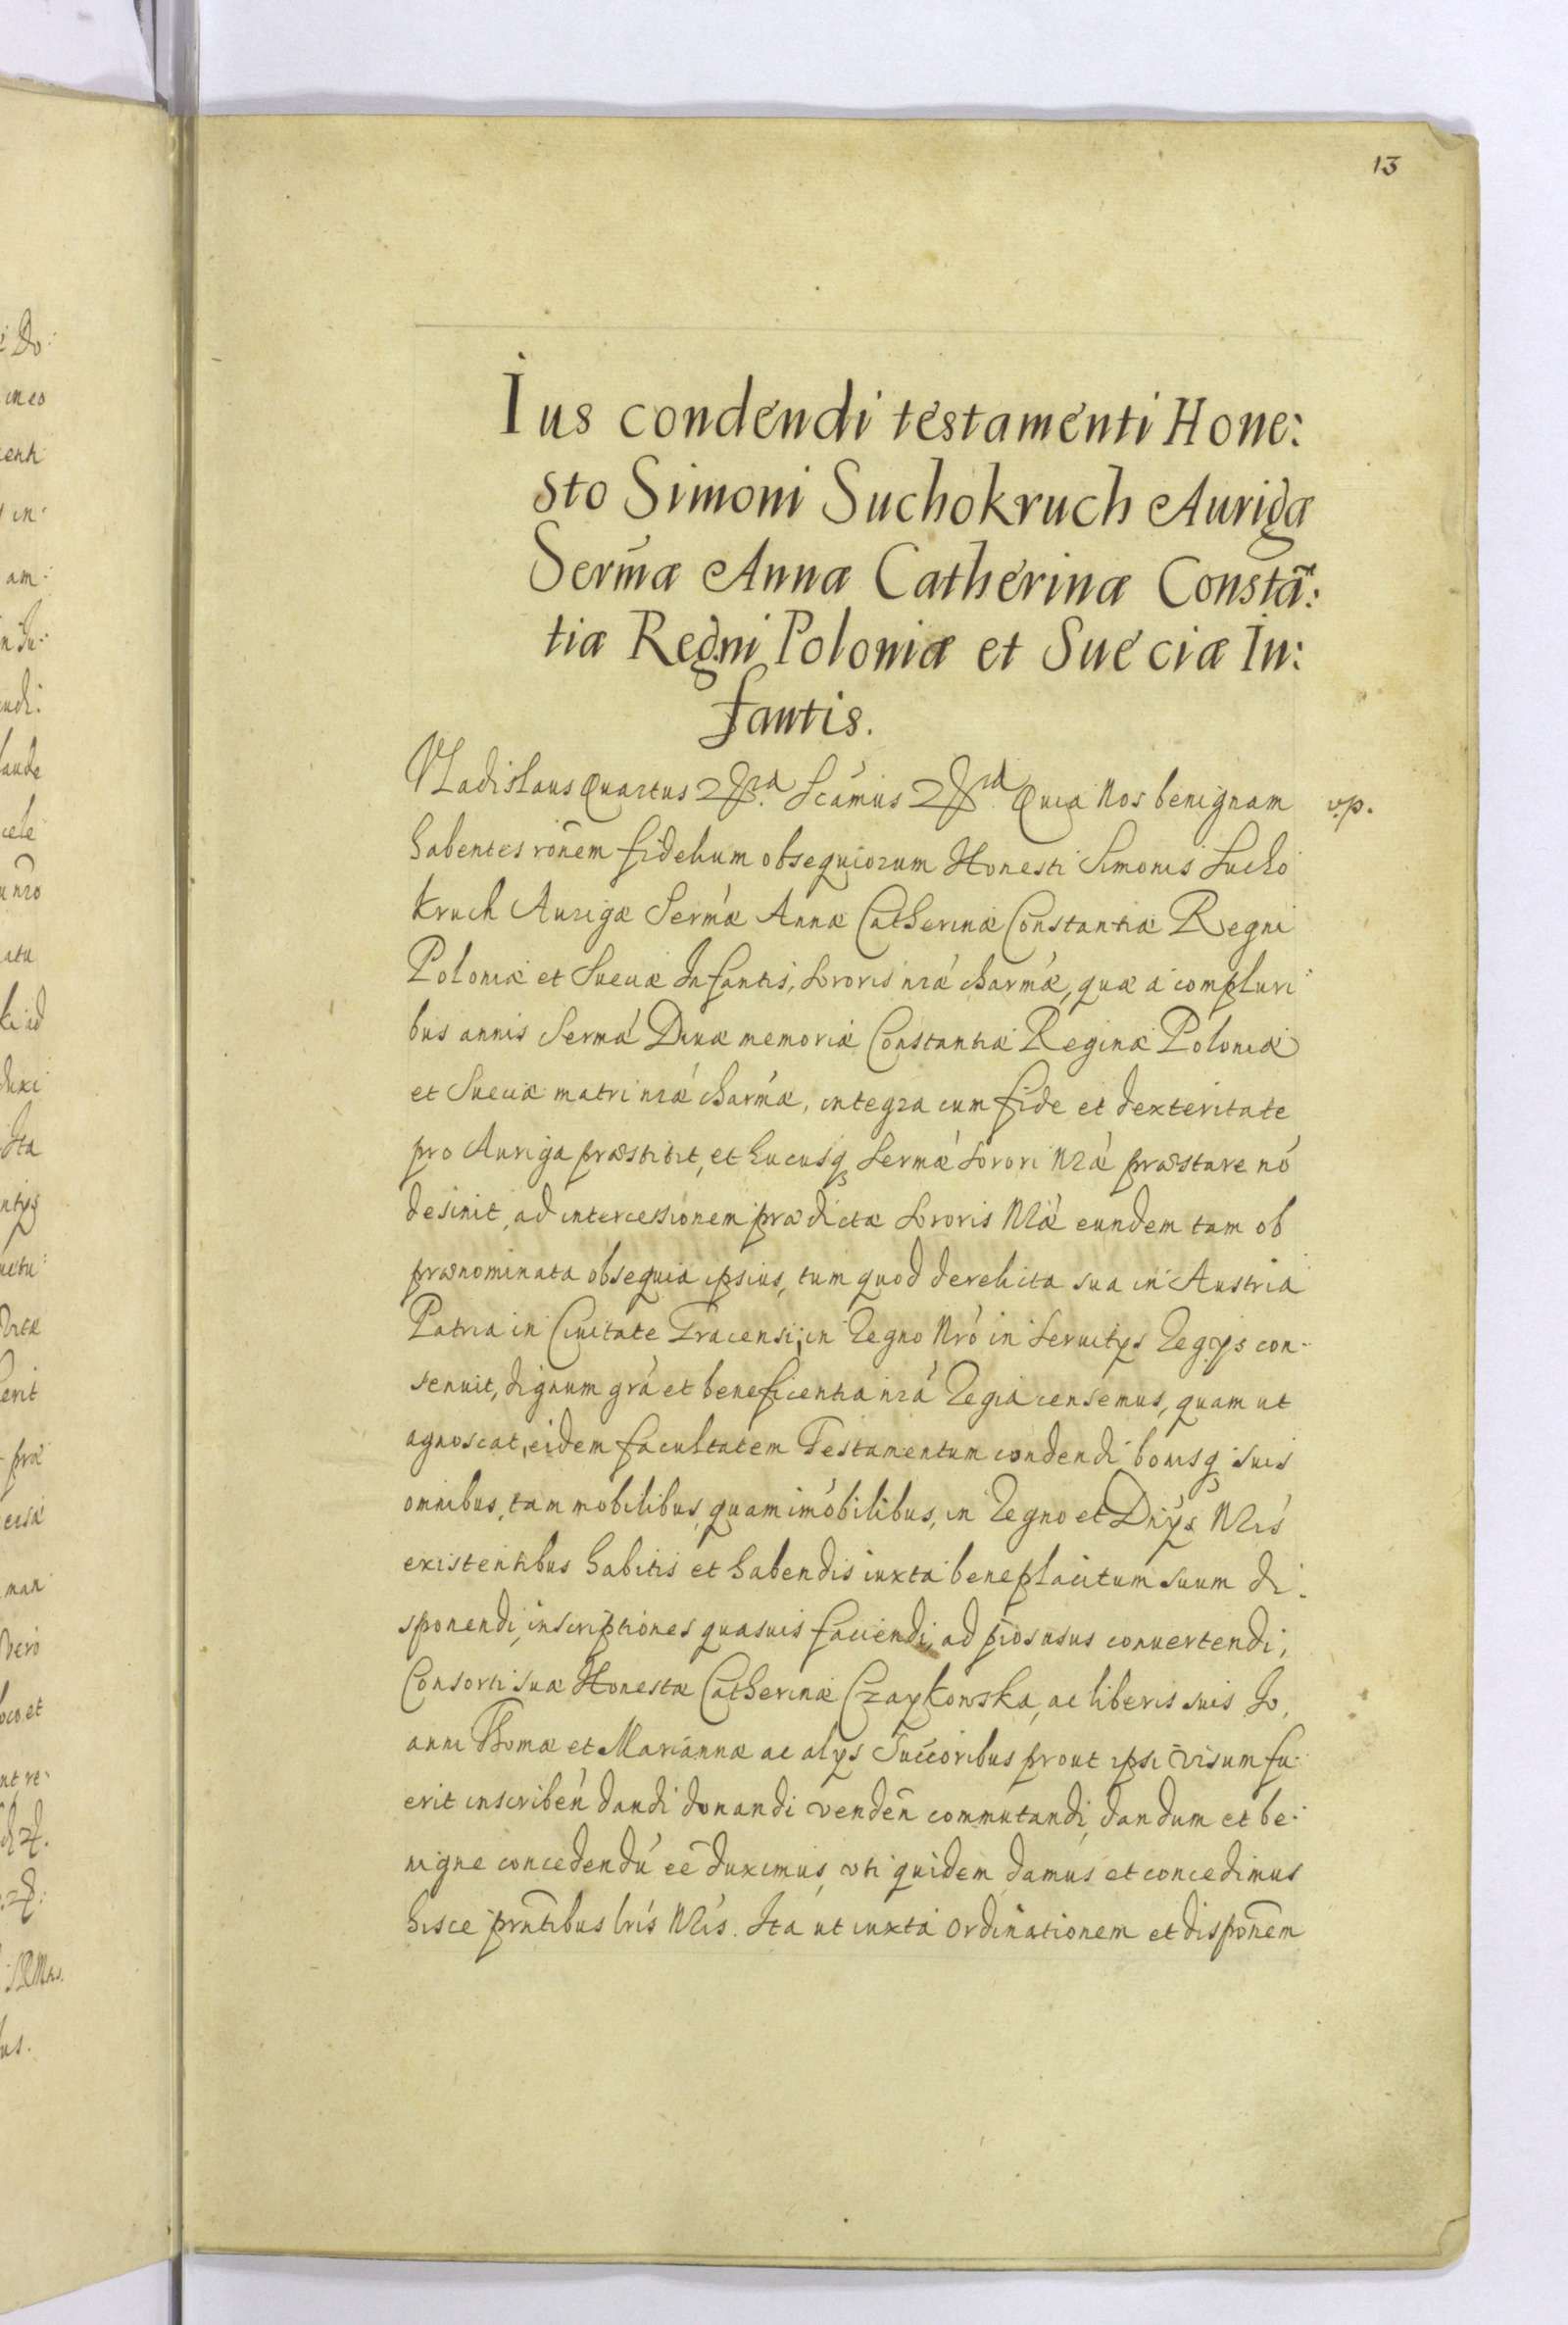 13
Ius condendi testamenti Hone:
sto Simoni Suchokruch Auriga
Serm̃æ Annæ Catherinæ Constã:
tiæ Regni Poloniæ et Sueciæ In:
fantis.
Vladislaus Quartus Scámus Quia Nos benignam
v.p.
habentes rõnem fidelium obsequiorum Honesti Simonis Sucho
kruch Aurigæ Sermæ Annæ Catherinæ Constantiæ Regni
Poloniæ et Sueciæ Infantis, Sororis nræ charmæ, quæ a compluri
bus annis Sermæ Divæ memoriæ Constantiæ Reginæ Poloniæ
et Sueciæ matri nræ charmæ, integra cum fide et dexteritate
pro Auriga præstitit, et hucusq Sermæ Sorori Nræ præstare nó
desinit, ad intercessionem prædictæ Sororis Nræ eundem tam ob
prænominata obsequia ipsius, tum quod derelicta sua in Austria
Patria in Civitate Gracensi, in Regno Nró in Servitÿs Regÿs con-
senuit, dignum grá et beneficentia nrá Regia censemus, quam ut
agnoscat, eidem facultatem Testamentum condendi bonisq suis
omnibus, tam mobilibus, quam imóbilibus, in Regno et Dnÿs Nrís
existentibus habitis et habendis iuxta beneplacitum suum di-
sponendi, inscriptiones quasvis faciendi, ad pios usus convertendi,
Consorti suæ Honestæ Catherinæ Czaykowska, ac liberis suis Jo,
anni Thomæ et Mariannæ ac alÿs Succoribus prout ipsi visum fu-
erit inscribeń dandi donandi vendeñ commutandi, dandum et be-
nigne concedendú eẽ duximus, uti quidem damus et concedimus
hisce prñtibus lrís Nrís. Ita ut iuxta ordinationem et dispoñem